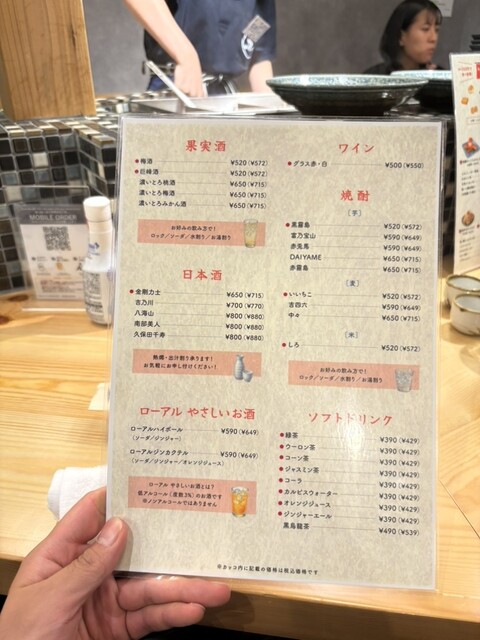 果実酒
梅酒 ¥520 (¥572)
巨峰酒 ¥520 (¥572)
濃いとろ桃酒 ¥650 (¥715)
濃いとろ梅酒 ¥650 (¥715)
濃いとろみかん酒 ¥650 (¥715)
お好みの飲み方で!
ロック/ソーダ/水割り/お湯割り
日本酒
金剛力士 ¥650 (¥715)
吉乃川 ¥700 (¥770)
八海山 ¥800 (¥880)
南部美人 ¥800 (¥880)
久保田千寿 ¥800 (¥880)
熱燗・出汁割り承ります!
お気軽にお申し付けください!
ローアル やさしいお酒
ローアルハイボール ¥590 (¥649)
(ソーダ/ジンジャー)
ローアルジンカクテル ¥590 (¥649)
(ソーダ/ジンジャー/オレンジジュース)
ローアル やさしいお酒とは?
低アルコール(度数3%)のお酒です
※ノンアルコールではありません
ワイン
グラス赤・白 ¥500 (¥550)
焼酎
[芋]
黒霧島 ¥520 (¥572)
富乃宝山 ¥590 (¥649)
赤兎馬 ¥590 (¥649)
DAIYAME ¥650 (¥715)
赤霧島 ¥650 (¥715)
[麦]
いいちこ ¥520 (¥572)
吉四六 ¥590 (¥649)
中々 ¥650 (¥715)
[米]
しろ ¥520 (¥572)
お好みの飲み方で!
ロック/ソーダ/水割り/お湯割り
ソフトドリンク
緑茶 ¥390 (¥429)
ウーロン茶 ¥390 (¥429)
コーン茶 ¥390 (¥429)
ジャスミン茶 ¥390 (¥429)
コーラ ¥390 (¥429)
カルピスウォーター ¥390 (¥429)
オレンジジュース ¥390 (¥429)
ジンジャーエール ¥390 (¥429)
黒烏龍茶 ¥490 (¥539)
※カッコ内に記載の価格は税込価格です
MOBILE ORDER